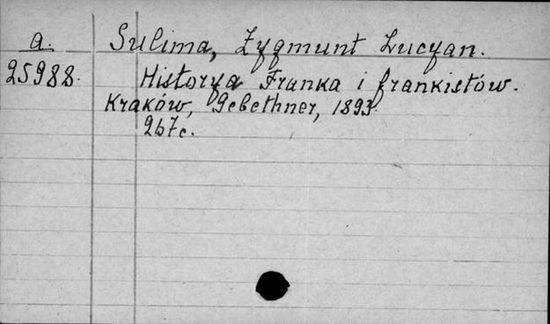 a. Sulima, Zygmunt Lucyan.
25988. Historya Franka i frankistów.
Kraków, Gebethner, 1893.
267c.